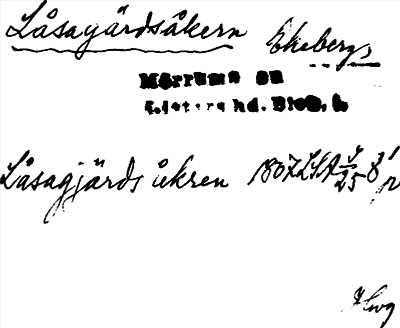 Låsagärdsåkern Ekebergs
Mörrums sn
Listers hd. Blek. l.
Låsagjärds åkren 1807 LSA